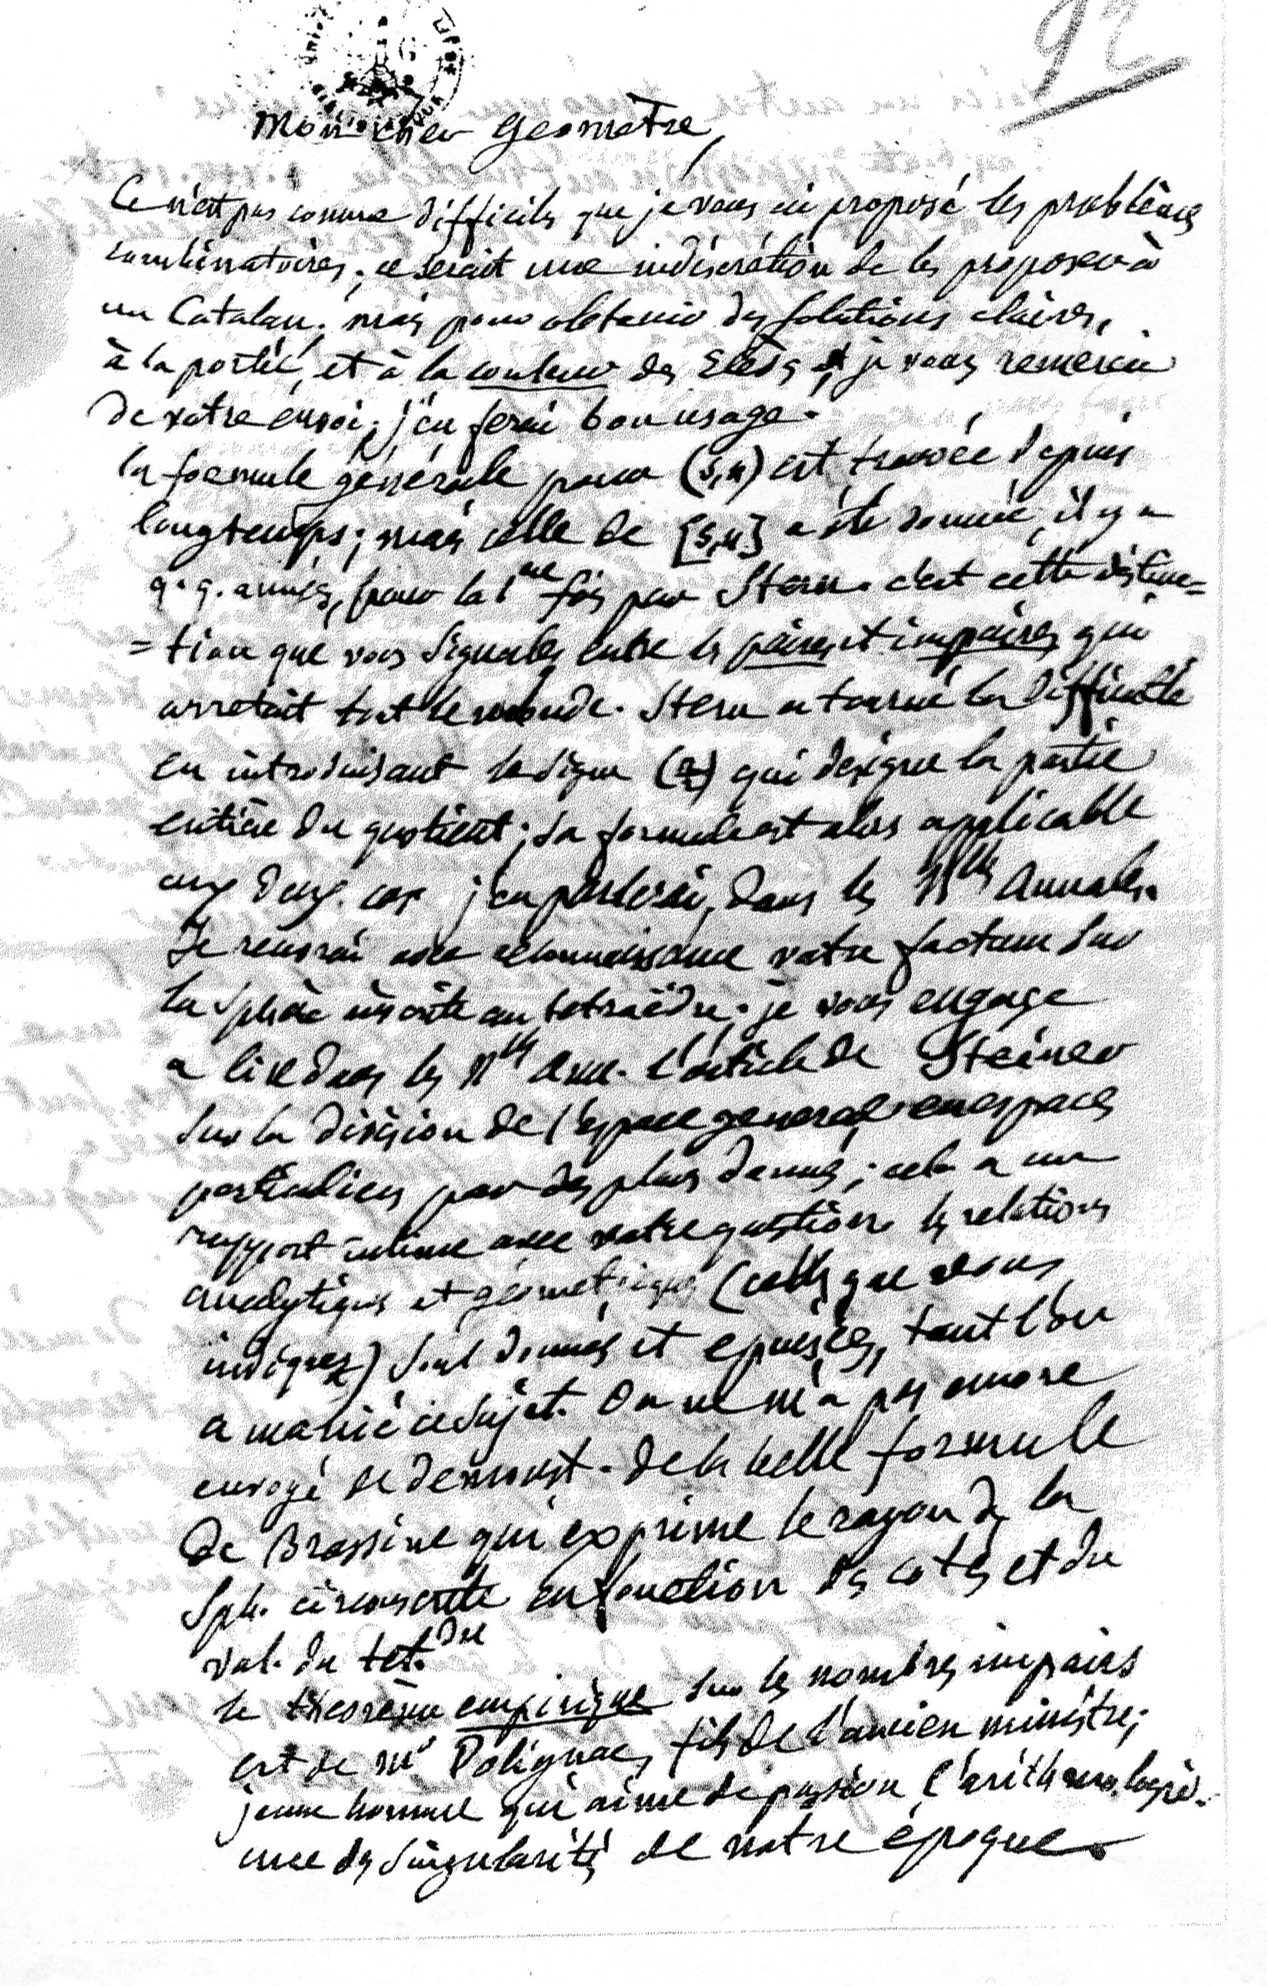 92
Mon cher Geometre,
Ce n'est pas comme difficiles que je vous ai proposé les problêmes
combinatoires; ce serait une indiscrétion de les proposer à
un Catalan; mais pour obtenir des solutions claires,
à la portée, et à la couleur des Elèves et je vous remercie
de votre envoi; j'en ferai bon usage.
la formule générale pour (5,n) est trouvée depuis
longtemps; mais celle de [5,n] a été donnée, il y a
q.q. années, pour la 1re fois par Stern. c'est cette distinc=
=tion que vous signalez entre les paires et impaires qui
arretait tout le monde. Stern a tourné la difficulté
en introduisant le signe qui désigne la partie
entière du quotient; sa formule est alors applicable
aux deux cas j'en parlerai, dans les Nlles Annales.
Je recevrai avec reconnaissance votre factum sur
la sphère inscrite au tetraèdre. je vous engage
a lire dans les Nlles Ann. l'article de Steiner
sur la division de l'espace general en espaces
particuliers par des plans donnés; cela a un
rapport intime avec votre question les relations
analytiques et géometriques (celles que vous
indiquez) sont données et epuisées, tant l'on
a manié ce sujet. On ne m'a pas encore
envoyé de demonst. de la belle formule
de Brassine qui exprime le rayon de la
Sph. circonscrite en fonction des cotés et du
vol. du tet.dre
le théorème empirique sur les nombres impairs
est de Mr Polignac, fils de l'ancien ministre;
jeune homme qui aime de passion l'arithmologie.
une des singularités de notre époque.